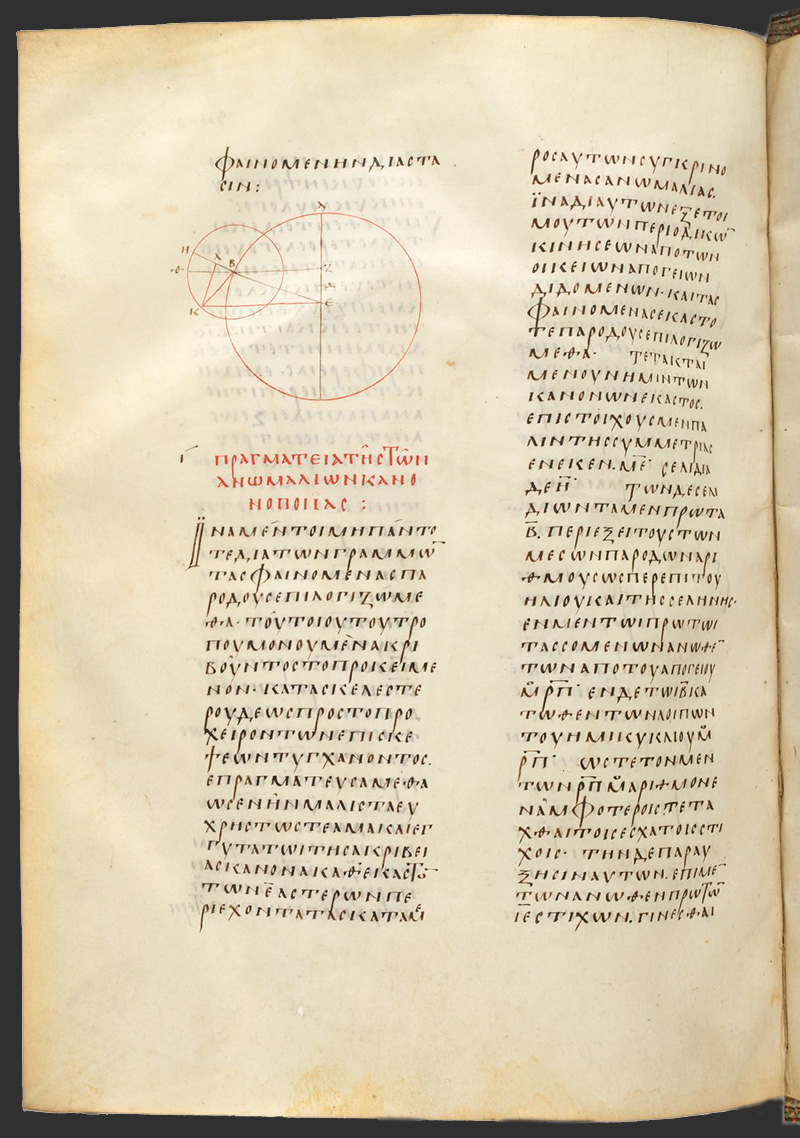 ΦΑΙΝΟΜΕΝΗΝΔΙΑΣΤΑ
ΣΙΝ:
Α
Η
Λ
Β
Θ
Ζ
Δ
Κ
Ε
Γ
ΠΡΑΓΜΑΤΕΙΑΤΗΣΤΩΝ
ΑΝΩΜΑΛΙΩΝΚΑΝΟ
ΝΟΠΟΙΙΑΣ:
ΪΝΑΜΕΝΤΟΙΜΗΠΑΝΤΟ
ΤΕΔΙΑΤΩΝΓΡΑΜΜΩ̅
ΤΑΣΦΑΙΝΟΜΕΝΑΣΠΑ
ΡΟΔΟΥΣΕΠΙΛΟΓΙΖΩΜΕ
ΘΑ·ΤΟΥΤΟΙΟΥΤΟΥΤΡΟ
ΠΟΥΜΟΝΟΥΜΕΝΑΚΡΙ
ΒΟΥΝΤΟΣΤΟΠΡΟΚΕΙΜΕ
ΝΟΝ·ΚΑΤΑΣΚΕΛΕΣΤΕ
ΡΟΥΔΕΩΣΠΡΟΣΤΟΠΡΟ
ΧΕΙΡΟΝΤΩΝΕΠΙΣΚΕ
ΨΕΩΝΤΥΓΧΑΝΟΝΤΟΣ.
ΕΠΡΑΓΜΑΤΕΥΣΑΜΕΘΑ
ΩΣΕΝΗΝΜΑΛΙΣΤΑΕΥ
ΧΡΗΣΤΩΣΤΕΑΜΑΚΑΙΕΓ
ΓΥΤΑΤΩΙΤΗΣΑΚΡΙΒΕΙ
ΑΣΚΑΝΟΝΑΚΑΘΕΚΑΣΤΟ̅
ΤΩΝΕ̅ΑΣΤΕΡΩΝΠΕ
ΡΙΕΧΟΝΤΑΤΑΣΚΑΤΑΜΕ
ΡΟΣΑΥΤΩΝΣΥΓΚΡΙΝΟ
ΜΕΝΑΣΑΝΩΜΑΛΙΑΣ.
ΪΝΑΔΙΑΥΤΩΝΕΞΕΤΟΙ
ΜΟΥΤΩΝΠΕΡΙΟΔΙΚΩ̅
ΚΙΝΗΣΕΩΝΑΠΟΤΩΝ
ΟΙΚΕΙΩΝΑΠΟΓΕΙΩΝ
ΔΙΔΟΜΕΝΩΝ·ΚΑΙΤΑΣ
ΦΑΙΝΟΜΕΝΑΣΕΚΑΣΤΟ
ΤΕΠΑΡΟΔΟΥΣΕΠΙΛΟΓΙΖΩ
ΜΕΘΑ· ΤΕΤΑΚΤΑΙ
ΜΕΝΟΥΝΗΜΙΝΤΩΝ
ΚΑΝΟΝΩΝΕΚΑΣΤΟΣ.
ΕΠΙΣΤΟΙΧΟΥΣΜΕΝΠΑ
ΛΙΝΤΗΣΣΥΜΜΕΤΡΙΑΣ
ΕΝΕΚΕΝ.Μ̅Ε̅ ΣΕΛΙΔΙΑ
ΔΕΗ̅ ΤΩΝΔΕΣΕΛΙ
ΔΙΩΝΤΑΜΕΝΠΡΩΤΑ
Β̅. ΠΕΡΙΕΞΕΙΤΟΥΣΤΩΝ
ΜΕΣΩΝΠΑΡΟΔΩΝΑΡΙ
ΘΜΟΥΣΩΣΠΕΡΕΠΙΤΟΥ
ΗΛΙΟΥΚΑΙΤΗΣΣΕΛΗΝΗΣ·
ΕΝΜΕΝΤΩΙΠΡΩΤΩΙ
ΤΑΣΣΟΜΕΝΩΝΑΝΩΘΕ̅
ΤΩΝΑΠΟΤΟΥΑΠΟΓΕΙΟΥ
Μ̊Ρ̅Π̅ ΕΝΔΕΤΩΙΒ̅ΚΑ
ΤΩΘΕΝΤΩΝΛΟΙΠΩΝ
ΤΟΥΗΜΙΚΥΚΛΙΟΥΜ̊
Ρ̅Π̅ ΩΣΤΕΤΟΝΜΕΝ
ΤΩΝΡ̅Π̅Μ̊ΑΡΙΘΜΟΝΕ
ΝΑΜΦΟΤΕΡΟΙΣΤΕΤΑ
ΧΘΑΙΤΟΙΣΕΣΧΑΤΟΙΣΣΤΙ
ΧΟΙΣ· ΤΗΝΔΕΠΑΡΑΥ
ΞΗΣΙΝΑΥΤΩΝ.ΕΠΙΜΕ̅
ΤΩΝΑΝΩΘΕΝΠΡΩΤΩ̅
Ι̅Ε̅ΣΤΙΧΩΝ.ΓΙΝΕΣΘΑΙ